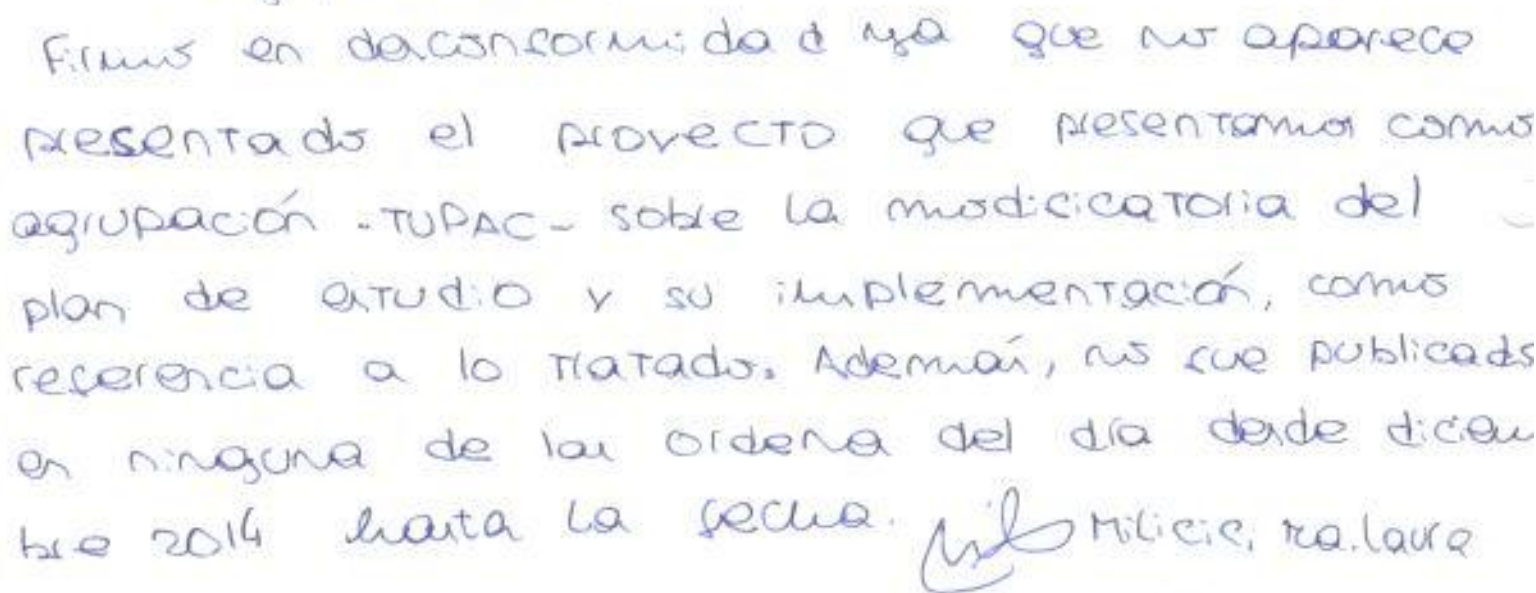 Firmo en desconformidad ya que no aparece
presentado el proyecto que presentamos como
agrupación -TUPAC- sobre la modificatoria del
plan de estudio y su implementación, como
referencia a lo tratado. Además, no fue publicado
en ninguna de las ordenes del día desde diciem
bre 2014 hasta la fecha. Milicic, Ma. Laura